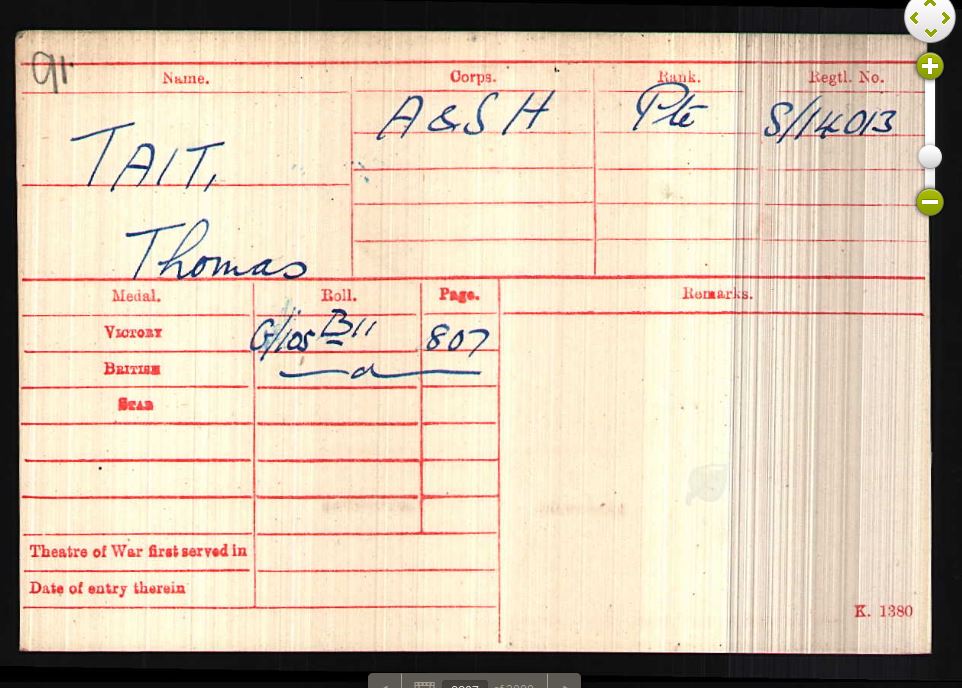 91.
Name. Corps. Rank. Regtl. No.
TAIT, A & S H Pte S/14013
Thomas
Medal. Roll. Page. Remarks.
VICTORY G/105 B11 807
BRITISH d
STAR
Theatre of War first served in
Date of entry therein
K. 1380